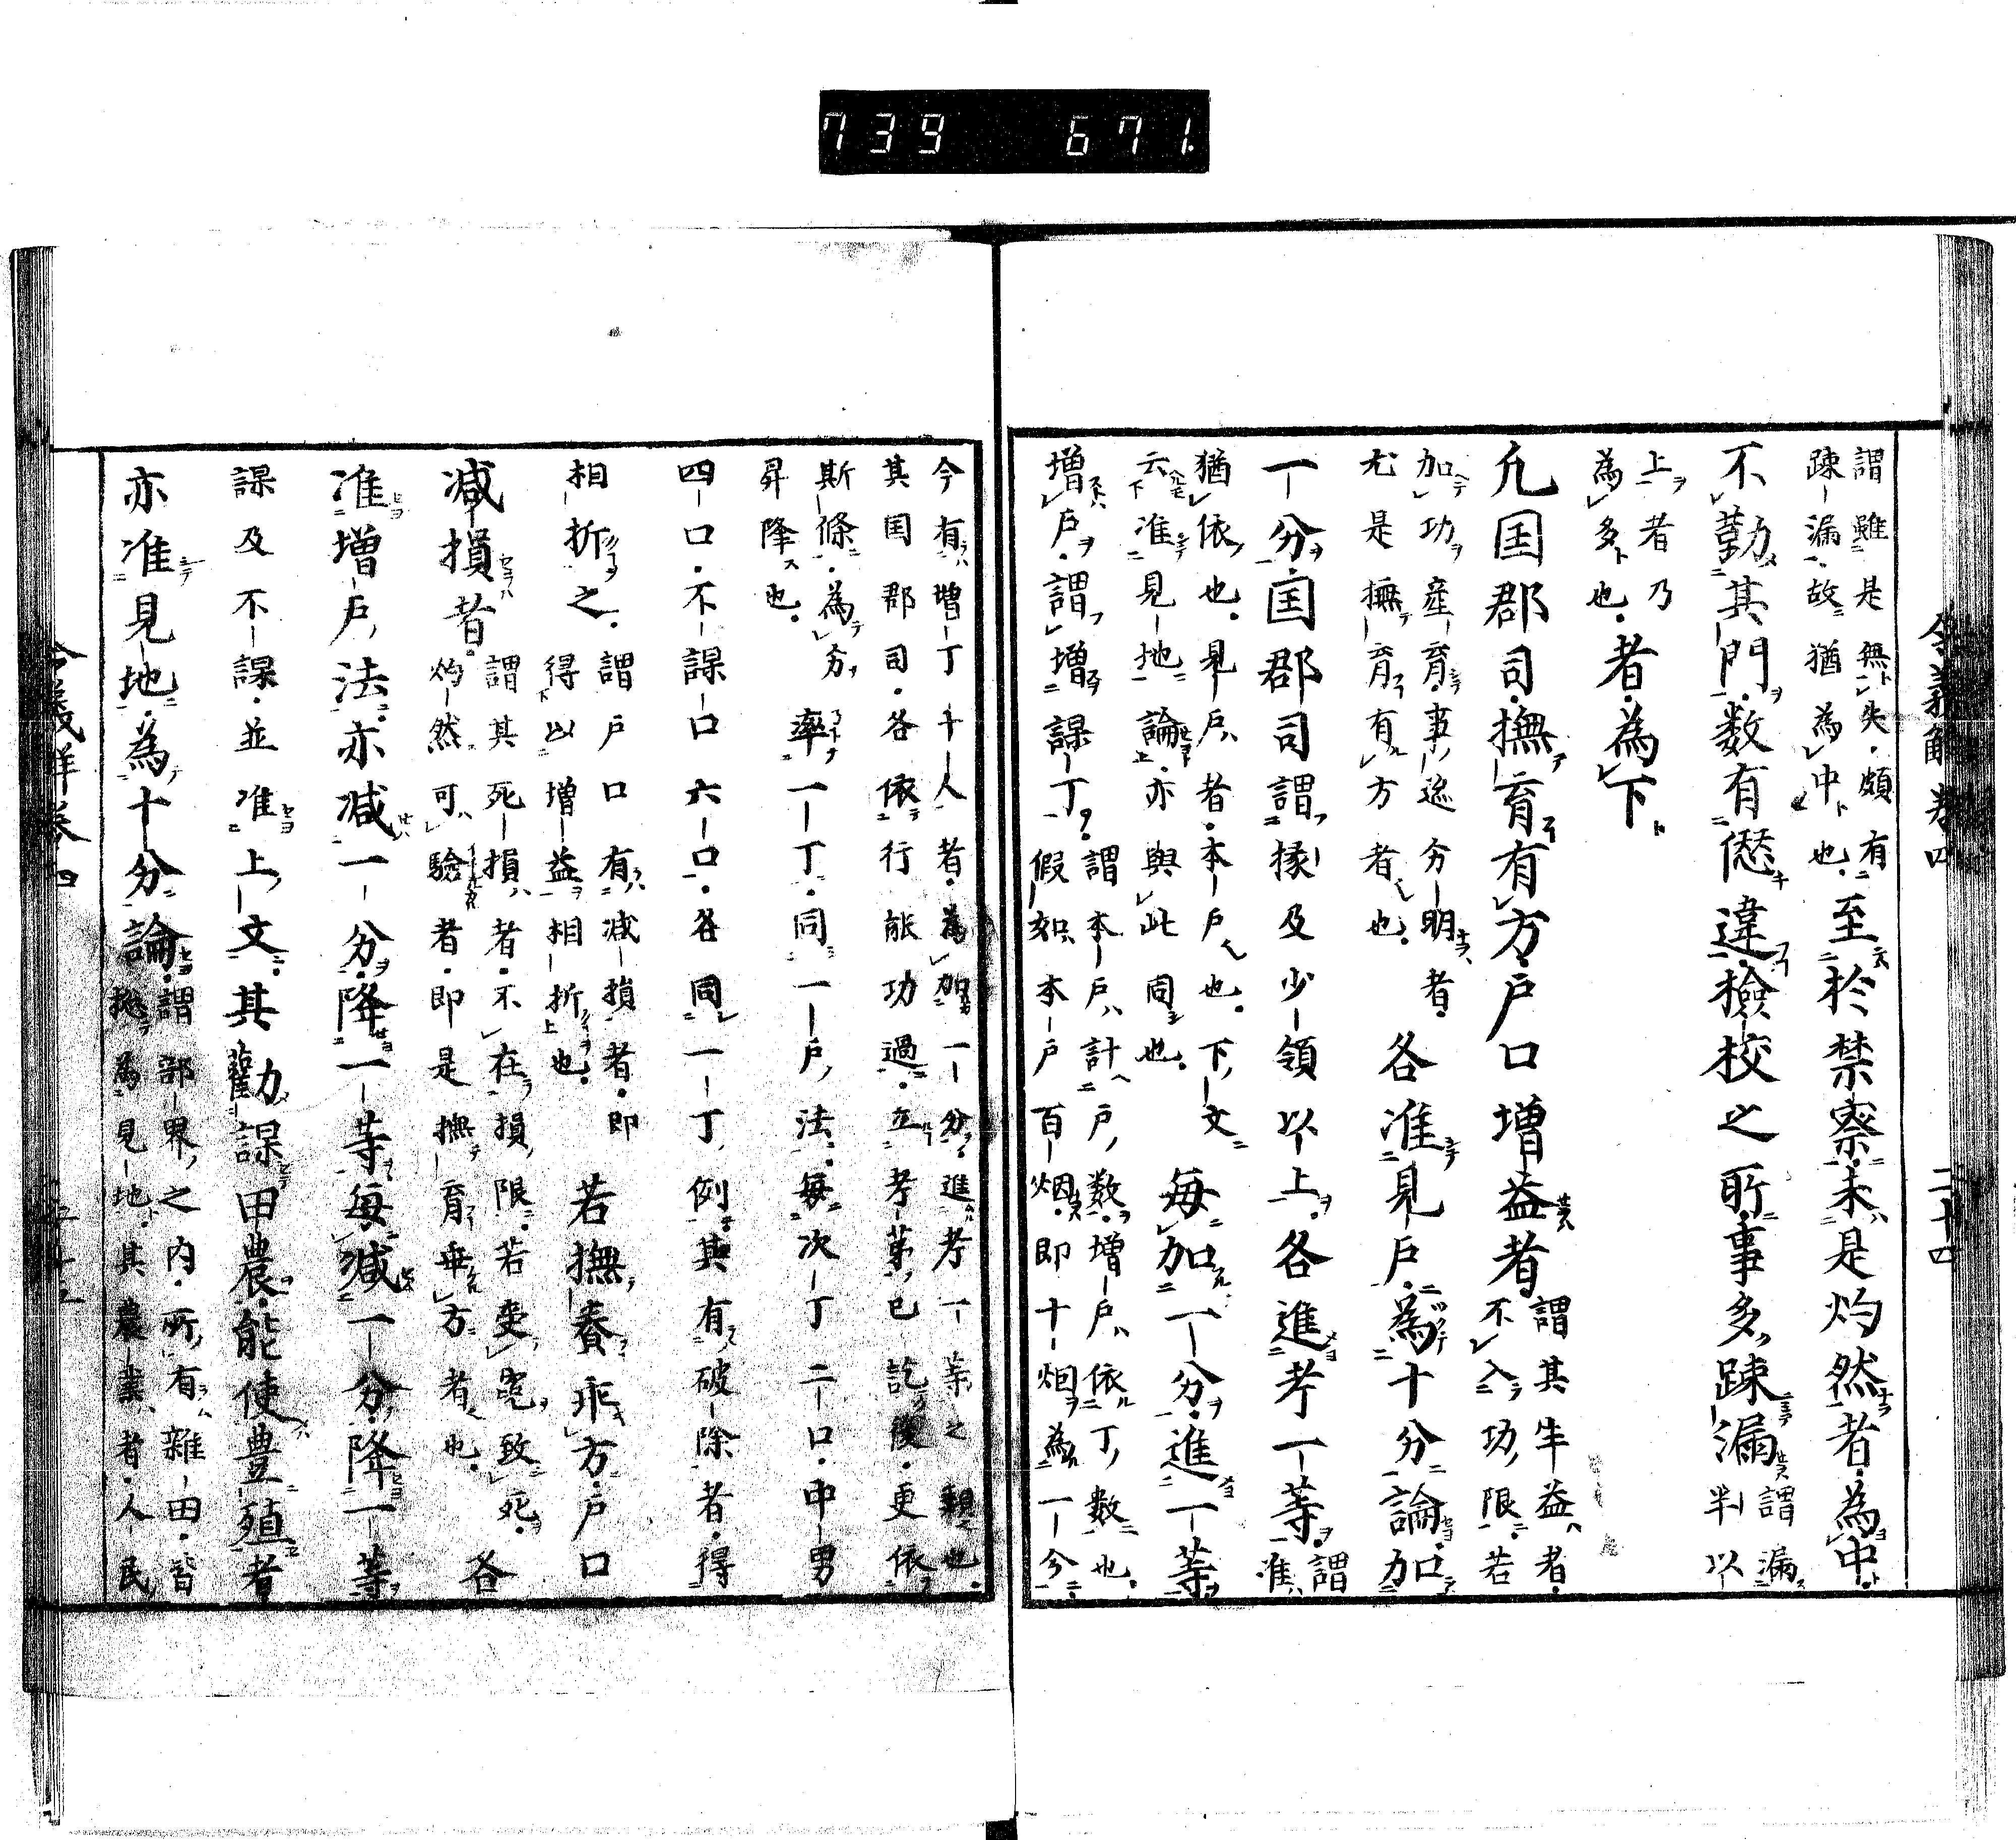 令義解巻四 二十四
謂雖是無失頗有
疎漏故猶為中也
至於禁察未是灼然者為中
不勤其門数有愆違檢校之所事多疎漏
謂漏
半以
上者乃
為多也
者為下
凢国郡司撫育有方戸口増益者
謂其牟益者
不入功限若
加功産育事迹分明者
尤是撫育有方者也
各准見戸為十分論加
一分国郡司謂掾及少領以上各進考一等
謂
准
猶依也見戸者本戸也下文
云准見地論亦與此同也
毎加一分進一等
増戸謂増課丁
謂本戸計戸数増戸依丁数也
假如本戸百烟即十烟為一分
今有増丁十人者為加一分進考一等之類也
其国郡司各依行能功過立考第已訖後更依
斯條為分
昇降也
率一丁同一戸法毎次丁二口中男
四口不課口六口各同一丁例其有破除者得
相折之
謂戸口有减損者即
得以増益相折也
若撫養乖方戸口
减損者
謂其死損者不在損限若受寃致死
灼然可驗者即是撫育乖方者也
各
准増戸法亦减一分降一等毎减一分降一等
課及不課並准上文其勸課田農能使豊殖者
亦准見地為十分論
謂部界之内所有雜田皆
惣為見地其農業者人民
739 671